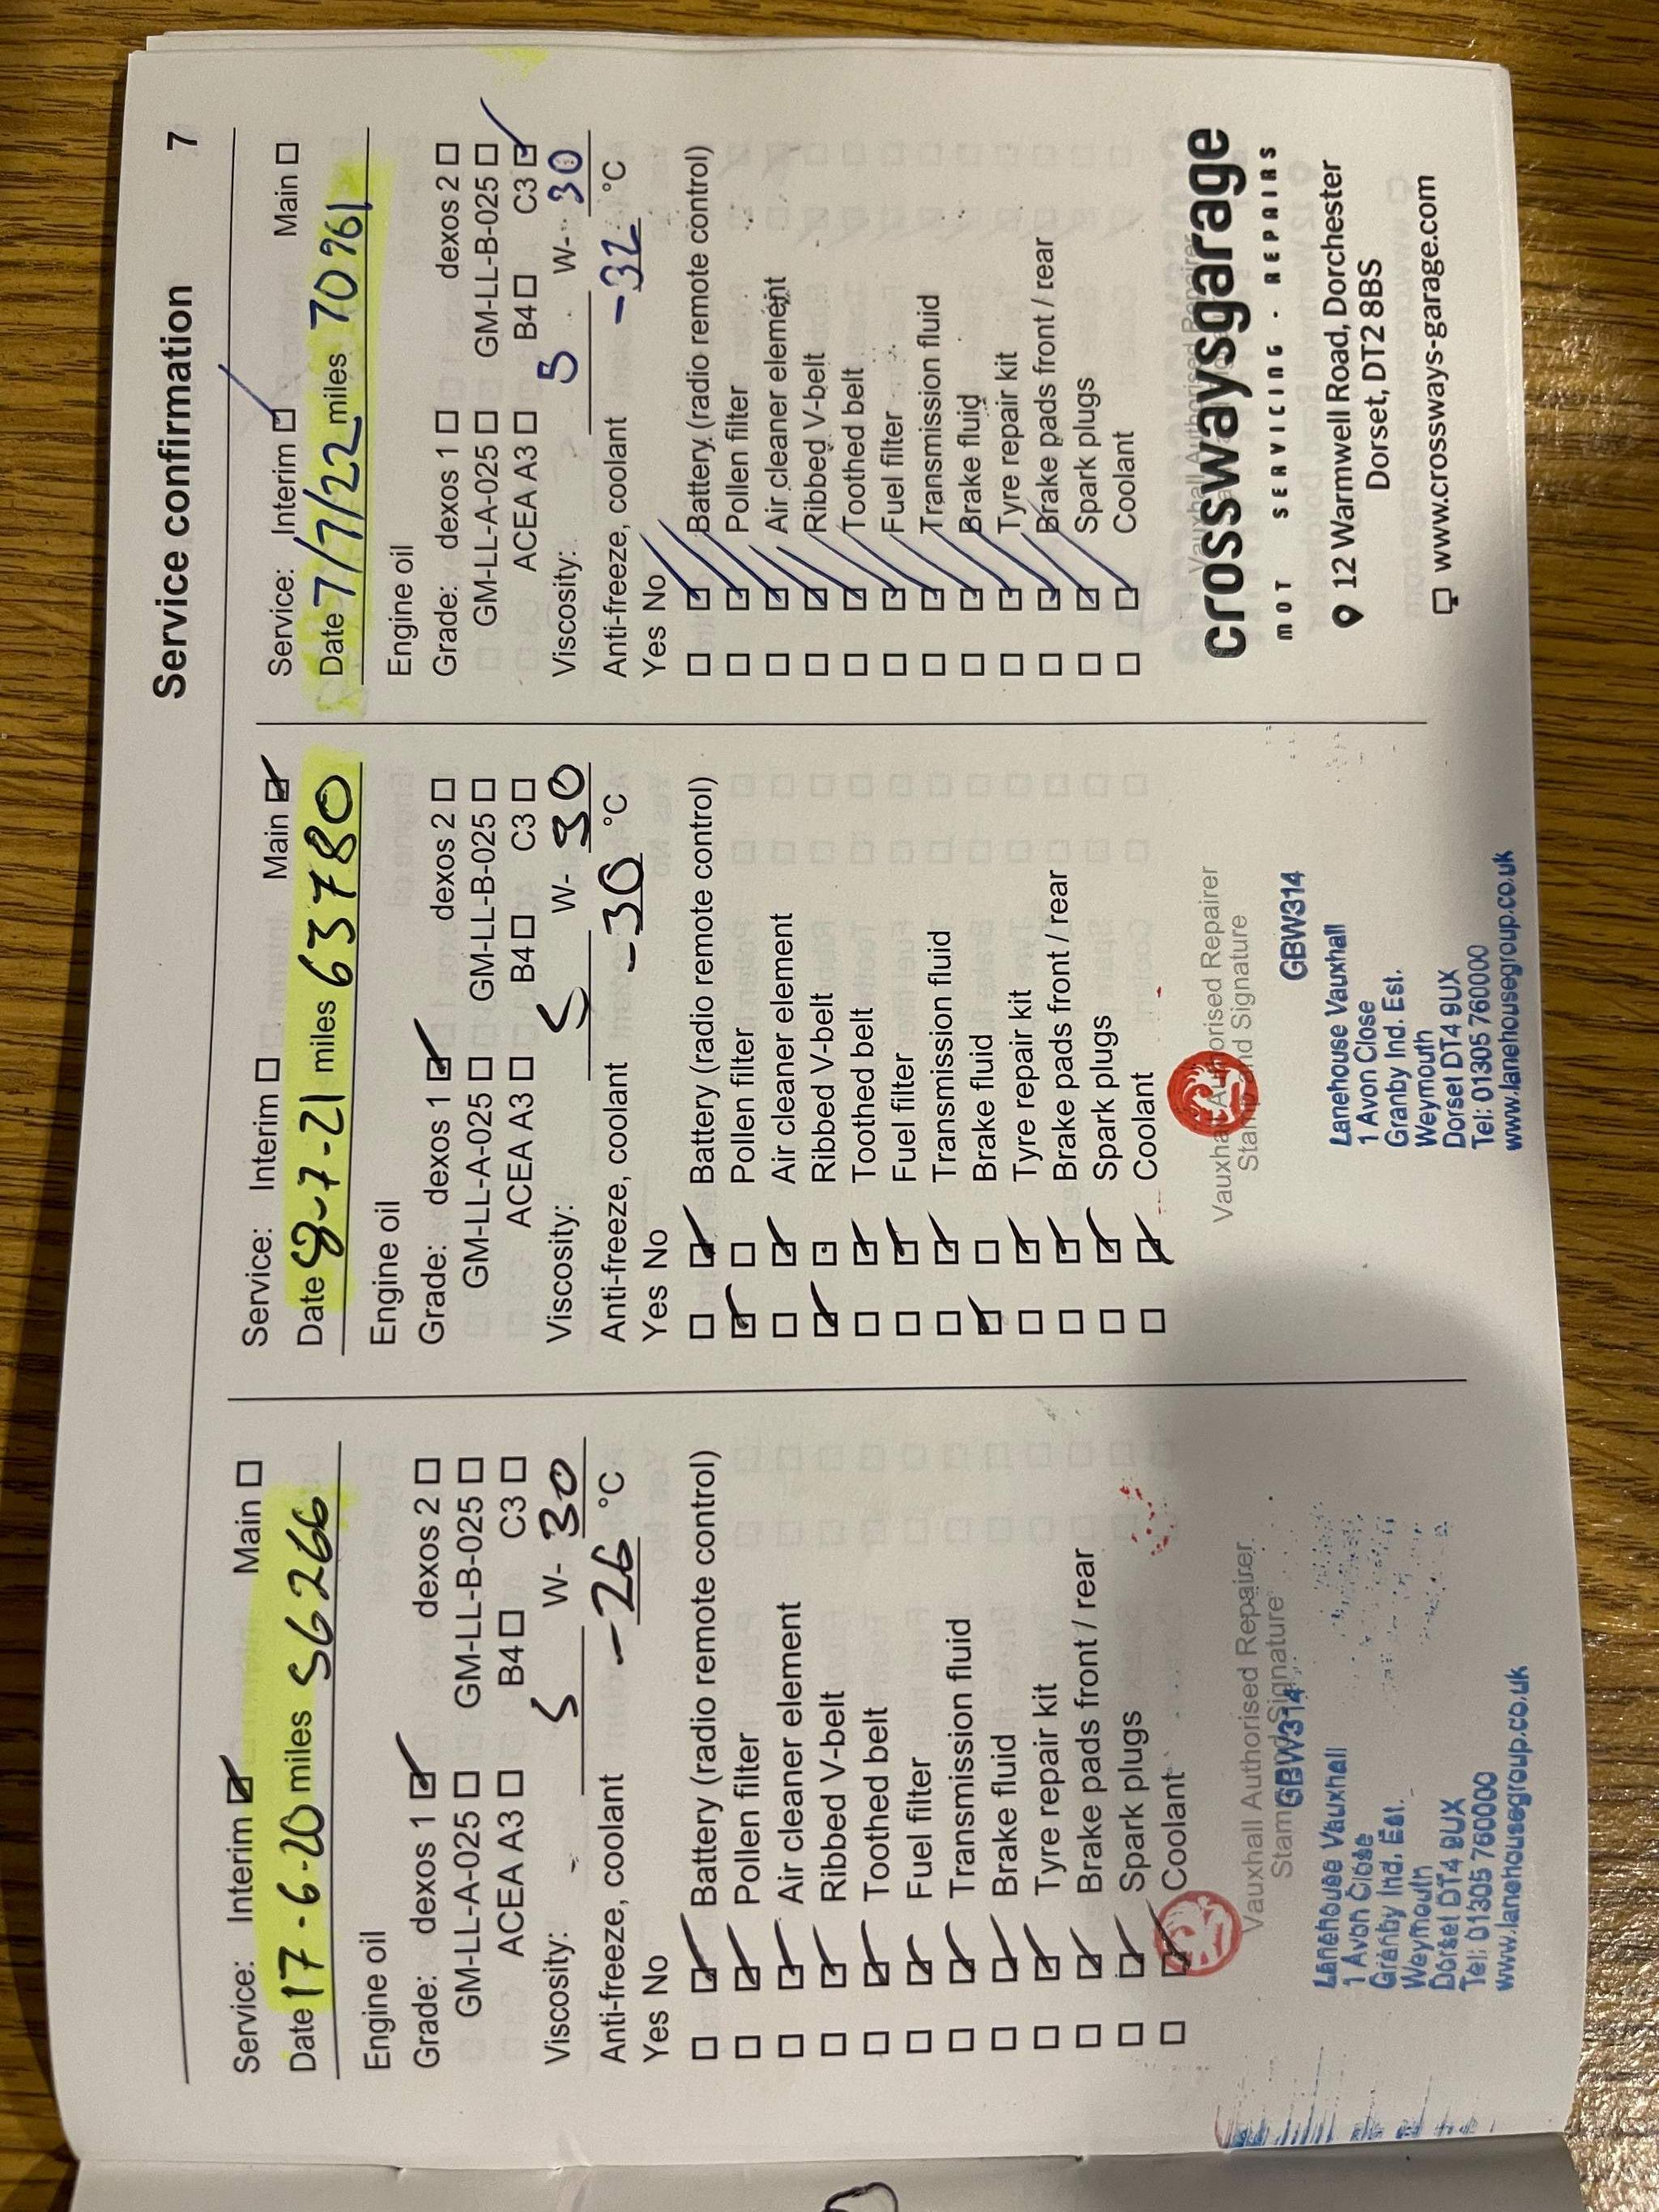 Service confirmation 7
Service: Interim ☑ Main ☐
Date 17-6-20 miles 56266
Engine oil
Grade: dexos 1 ☑ dexos 2 ☐
GM-LL-A-025 ☐ GM-LL-B-025 ☐
ACEA A3 ☐ B4 ☐ C3 ☐
Viscosity: 5 W- 30
Anti-freeze, coolant -26 °C
Yes No
☐ ☑ Battery (radio remote control)
☐ ☑ Pollen filter
☐ ☑ Air cleaner element
☐ ☑ Ribbed V-belt
☐ ☑ Toothed belt
☐ ☑ Fuel filter
☐ ☑ Transmission fluid
☐ ☑ Brake fluid
☐ ☑ Tyre repair kit
☐ ☑ Brake pads front / rear
☐ ☑ Spark plugs
☐ ☑ Coolant
Vauxhall Authorised Repairer
Stamp and Signature
GBW314
Lanehouse Vauxhall
1 Avon Close
Granby Ind. Est.
Weymouth
Dorset DT4 9UX
Tel: 01305 760000
www.lanehousegroup.co.uk
Service: Interim ☐ Main ☑
Date 8-7-21 miles 63780
Engine oil
Grade: dexos 1 ☑ dexos 2 ☐
GM-LL-A-025 ☐ GM-LL-B-025 ☐
ACEA A3 ☐ B4 ☐ C3 ☐
Viscosity: 5 W- 30
Anti-freeze, coolant -30 °C
Yes No
☐ ☑ Battery (radio remote control)
☑ ☐ Pollen filter
☐ ☑ Air cleaner element
☑ ☐ Ribbed V-belt
☐ ☑ Toothed belt
☐ ☑ Fuel filter
☐ ☑ Transmission fluid
☑ ☐ Brake fluid
☐ ☑ Tyre repair kit
☐ ☑ Brake pads front / rear
☐ ☑ Spark plugs
☐ ☑ Coolant
Vauxhall Authorised Repairer
Stamp and Signature
GBW314
Lanehouse Vauxhall
1 Avon Close
Granby Ind. Est.
Weymouth
Dorset DT4 9UX
Tel: 01305 760000
www.lanehousegroup.co.uk
Service: Interim ☑ Main ☐
Date 7/7/22 miles 70961
Engine oil
Grade: dexos 1 ☐ dexos 2 ☐
GM-LL-A-025 ☐ GM-LL-B-025 ☐
ACEA A3 ☐ B4 ☐ C3 ☑
Viscosity: 5 W- 30
Anti-freeze, coolant -32 °C
Yes No
☐ ☑ Battery (radio remote control)
☐ ☑ Pollen filter
☐ ☑ Air cleaner element
☐ ☑ Ribbed V-belt
☐ ☑ Toothed belt
☐ ☑ Fuel filter
☐ ☑ Transmission fluid
☐ ☑ Brake fluid
☐ ☑ Tyre repair kit
☐ ☑ Brake pads front / rear
☐ ☑ Spark plugs
☐ ☑ Coolant
Vauxhall Authorised Repairer
crosswaysgarage
MOT SERVICING - REPAIRS
12 Warmwell Road, Dorchester
Dorset, DT2 8BS
www.crossways-garage.com